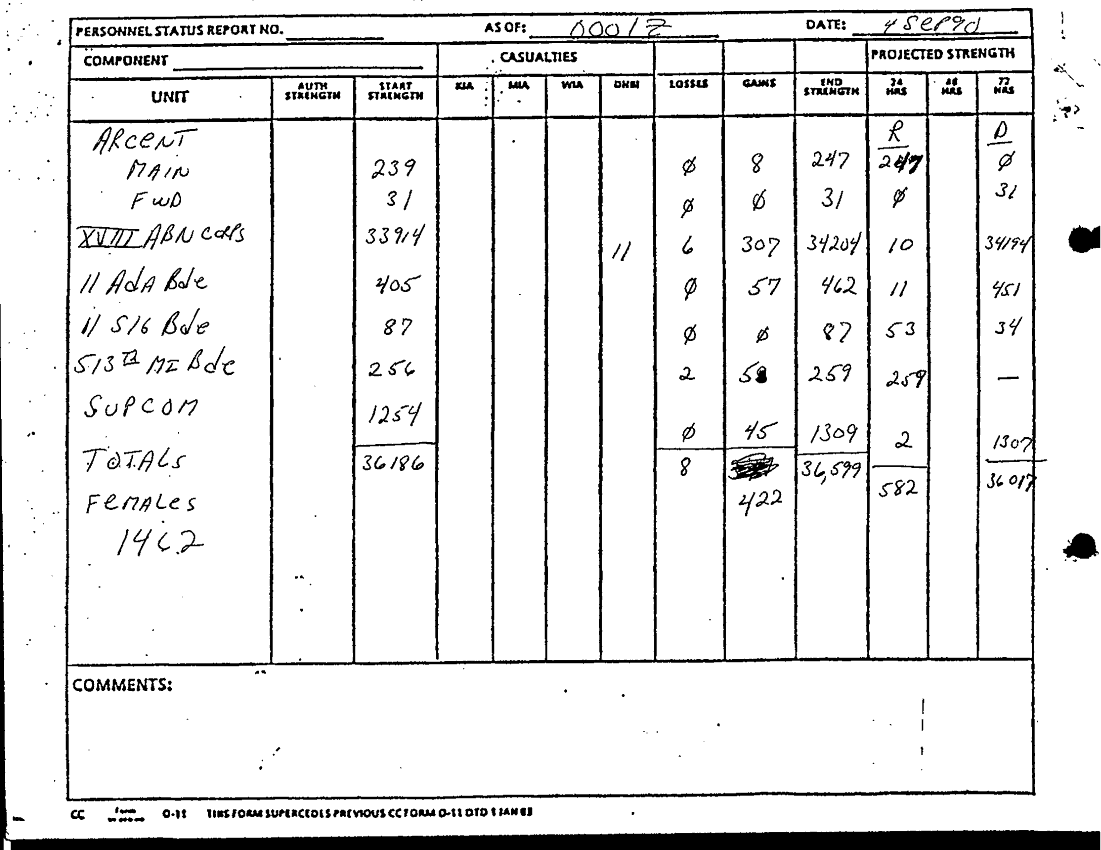 PERSONNEL STATUS REPORT NO. AS OF: 0001Z DATE: 4 Sep 90
COMPONENT CASUALTIES PROJECTED STRENGTH
UNIT AUTH STRENGTH START STRENGTH KIA MIA WIA DNBI LOSSES GAINS END STRENGTH 24 HRS 48 HRS 72 HRS
ARCENT R D
MAIN 239 Ø 8 247 247 Ø
FWD 31 Ø Ø 31 Ø 31
XVIII ABN CORPS 33914 11 6 307 34204 10 34194
11 AdA Bde 405 Ø 57 462 11 451
11 SIG Bde 87 Ø Ø 87 53 34
513th MI Bde 256 2 5 259 259 —
SUPCOM 1254 Ø 45 1309 2 1307
TOTALS 36186 8 422 36,599 582 36017
FEMALES
1462
COMMENTS:
CC Form O-11 THIS FORM SUPERCEDES PREVIOUS CC FORM O-11 DTD 1 JAN 83